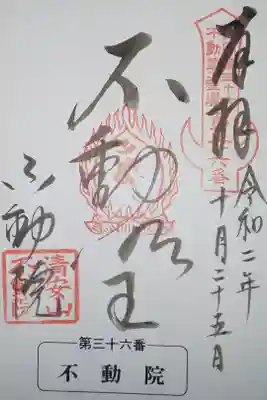 奉拝
令和二年
十月二十五日
不動明王
不動院
清安山
不動院
第三十六番
不動院